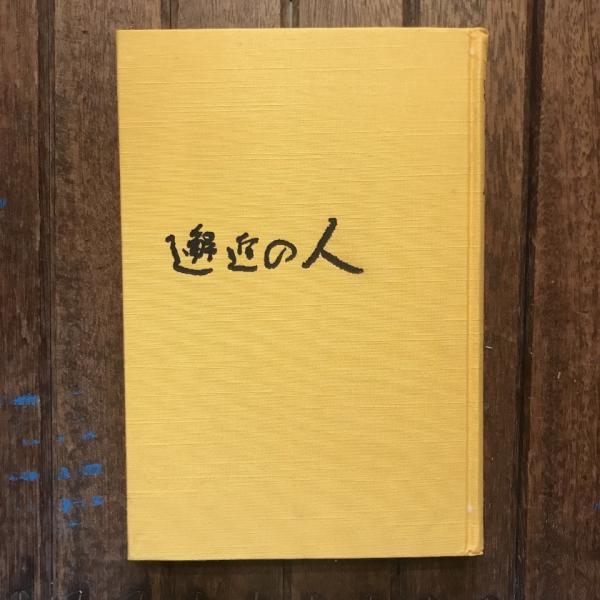 邂逅の人